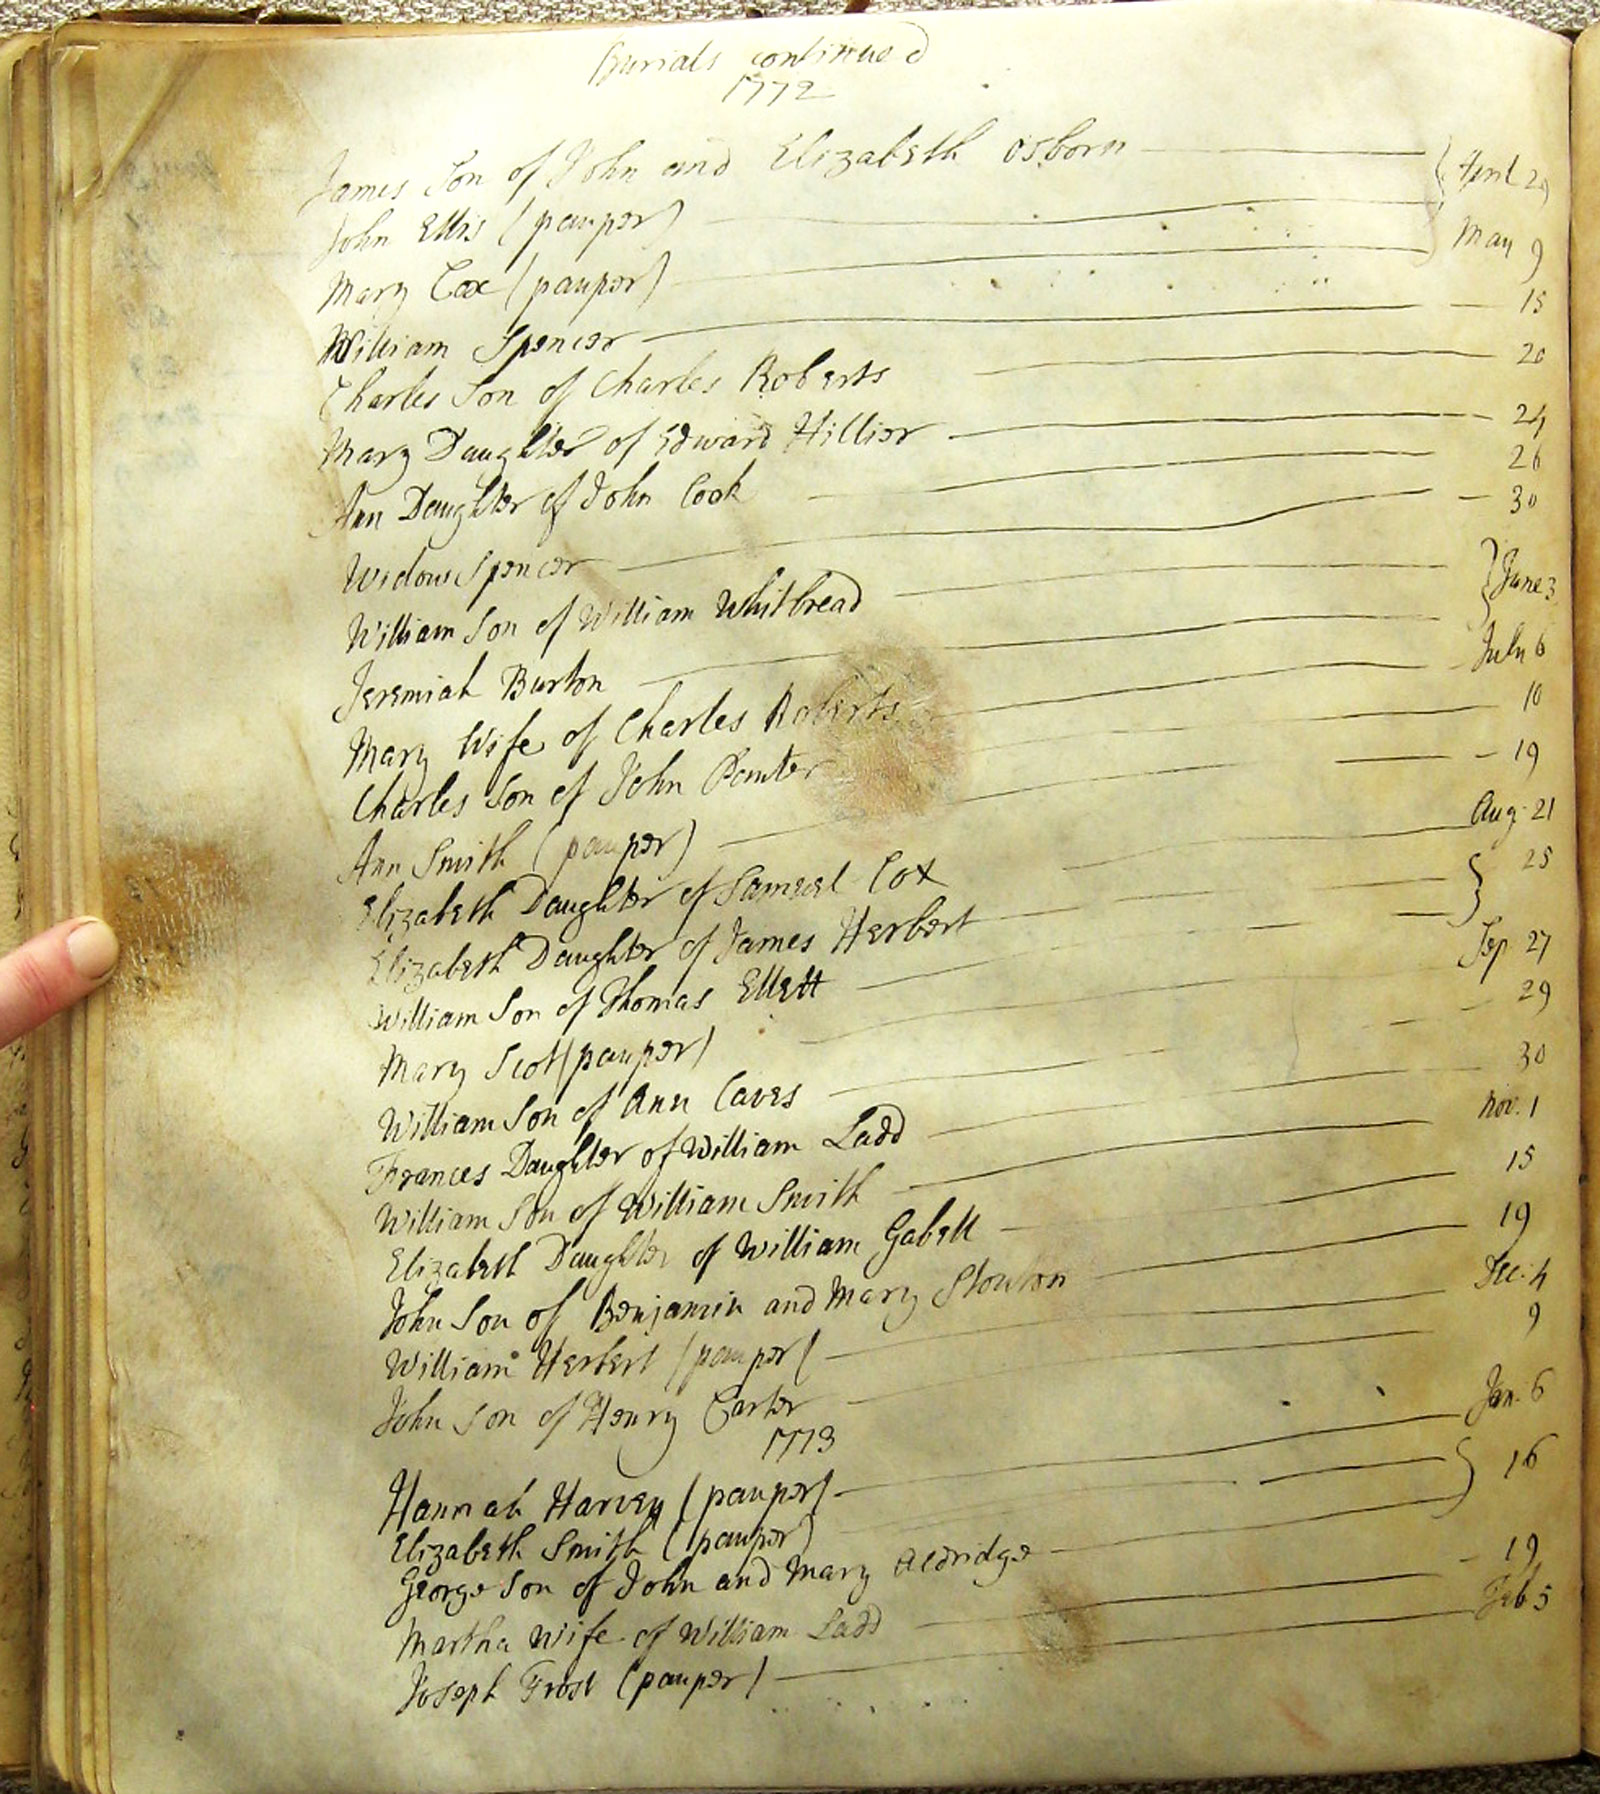 Burials continued
1772
James Son of John and Elizabeth Osborn April 29
John Ellis (pauper)
Mary Cox (pauper) May 9
William Spencer 15
Charles Son of Charles Roberts 20
Mary Daughter of Edward Hillier 24
Ann Daughter of John Cook 26
Widow Spencer 30
William Son of William Whitbread June 3
Jeremiah Burton
Mary Wife of Charles Roberts July 6
Charles Son of John Panter 10
Ann Smith (pauper) 19
Elizabeth Daughter of Samuel Cox Aug. 21
Elizabeth Daughter of James Herbert 25
William Son of Thomas Ellett
Mary Scot (pauper) Sep. 27
William Son of Ann Caves 29
Frances Daughter of William Ladd 30
William Son of William Smith Nov. 1
Elizabeth Daughter of William Gabell 15
John Son of Benjamin and Mary 19
William Herbert (pauper) Dec. 4
John Son of Henry Carter 9
1773
Hannah Harvey (pauper) Jan. 6
Elizabeth Smith (pauper) 16
George Son of John and Mary Aldridge
Martha Wife of William Ladd 19
Joseph Frost (pauper) Feb 5